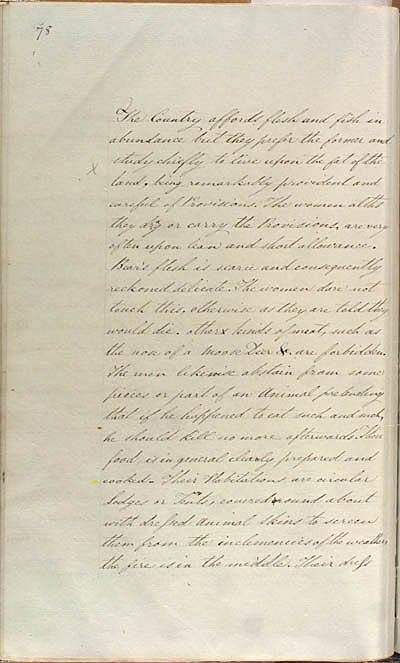 78
The Country affords flesh and fish in
abundance but they prefer the former and
study chiefly to live upon the fat of the
x
land, being remarkably provident and
careful of Provisions. The women altho
they dry or carry the Provisions, are very
often upon lean and short allowance.
Bear's flesh is scarce and consequently
reckoned delicate. The women dare not
touch this, otherwise as they are told they
would die. other kinds of meat, such as
the nose of a Moose Deer &c are forbidden.
The men likewise abstain from some
pieces or part of an Animal pretending
that if he happened to eat such and such,
he should kill no more afterwards. Their
food is in general cleanly prepared and
cooked - Their Habitations are circular
Lodges or Tents, covered round about
with dressed Animal skins to screen
them from the inclemencies of the weather
the fire is in the middle. Their dress